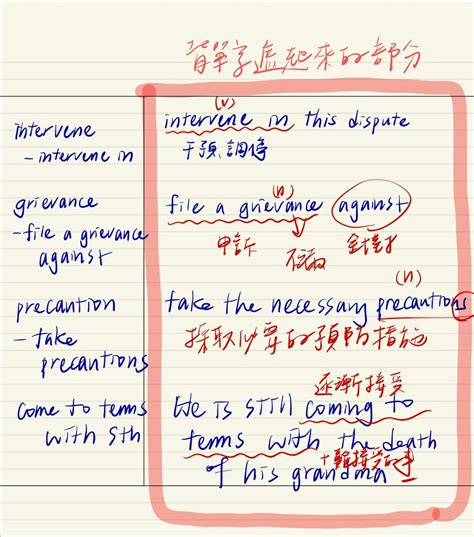 背單字處起來的部分
intervene
- intervene in
(v)
intervene in this dispute
干預 調停
grievance
- file a grievance
against
(n)
file a grievance against
申訴 不滿 針對
precaution
- take
precautions
(n)
take the necessary precautions
採取必要的預防措施
come to terms
with sth
逐漸接受
He is still coming to
terms with the death
+難接受的事
of his grandma